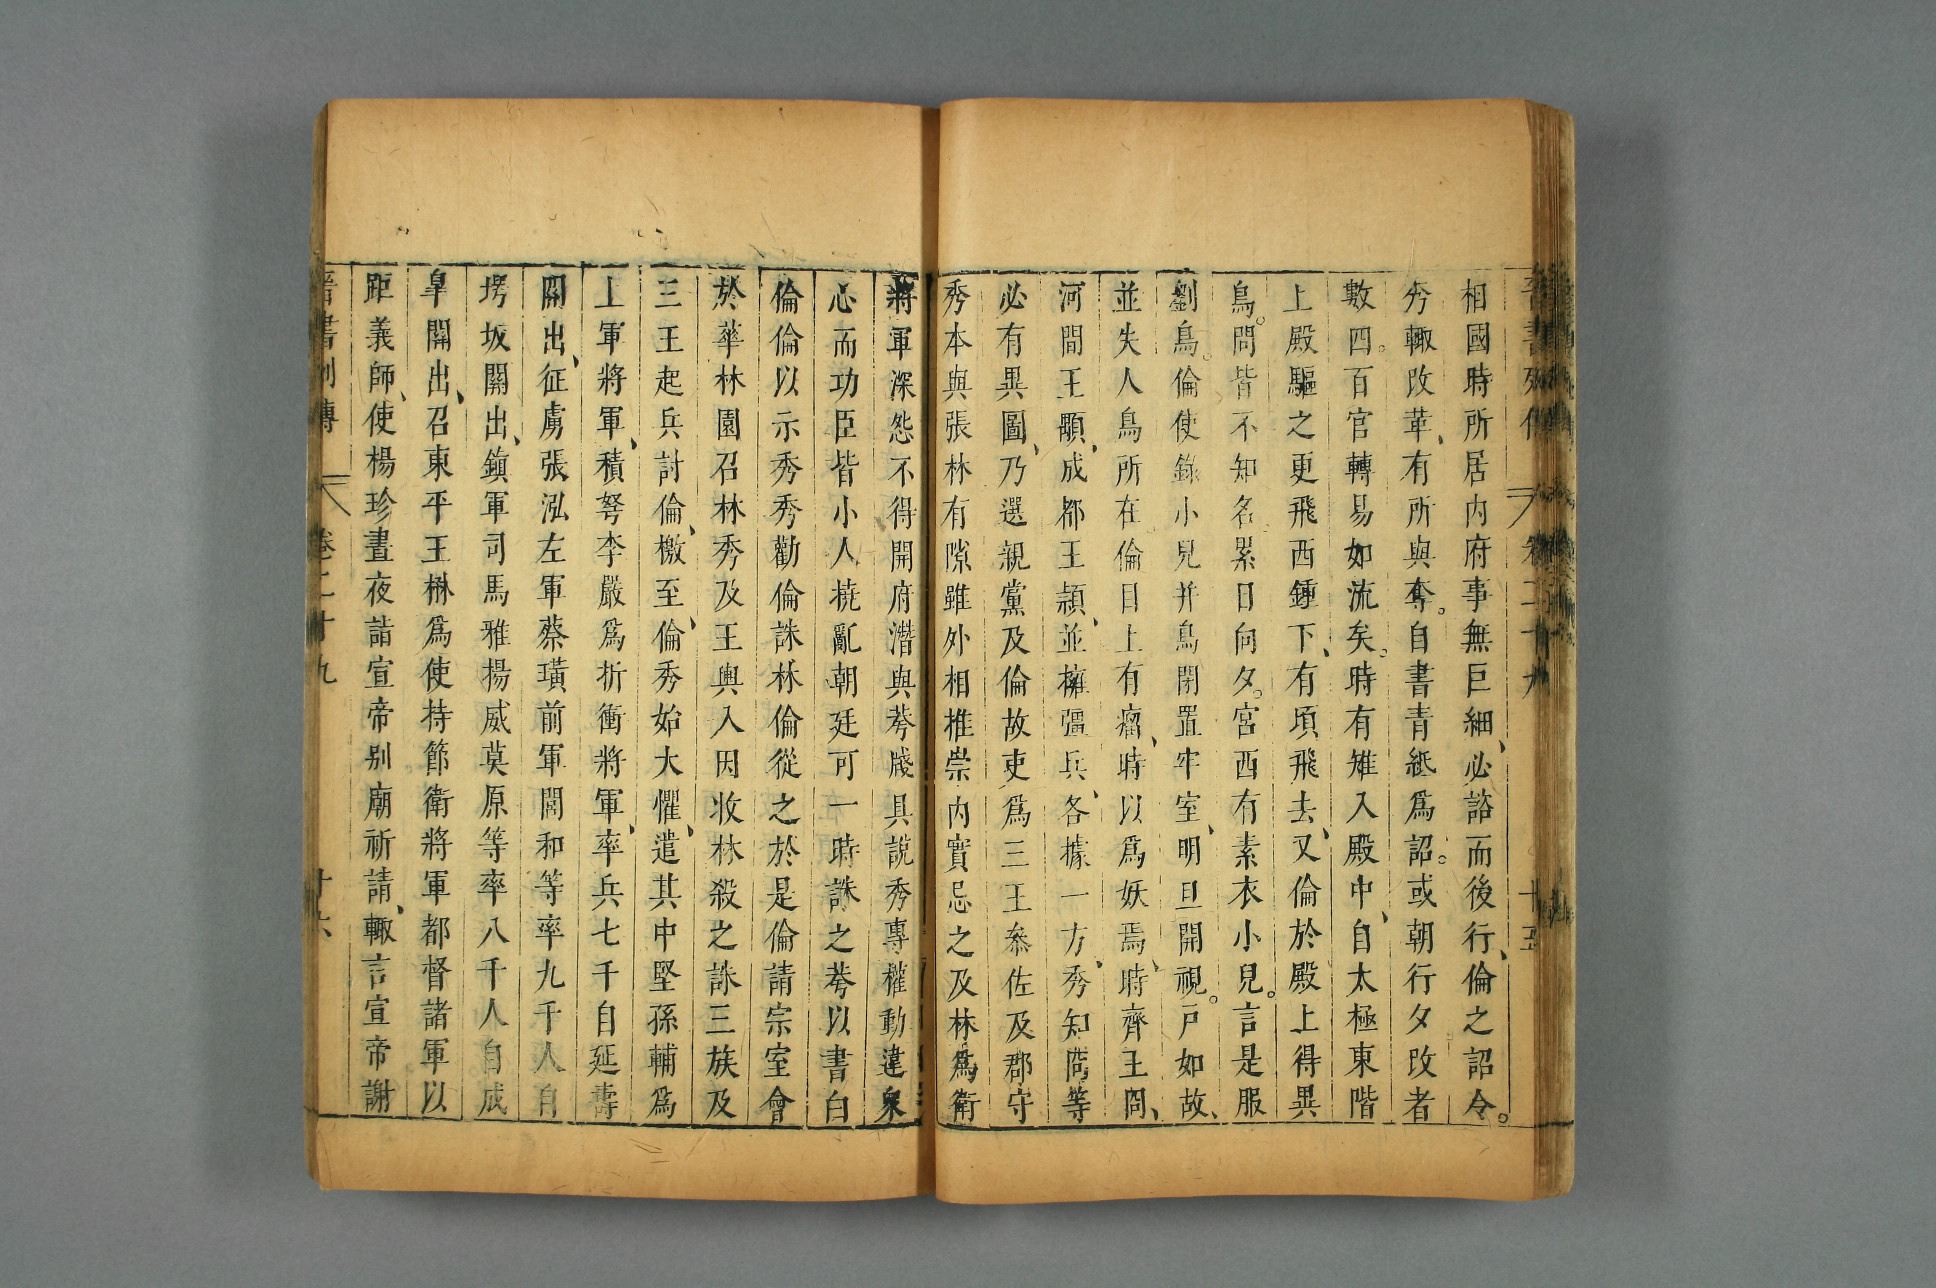 晉書列傳 卷二十九 十五
相國時所居內府事無巨細、必諮而後行、倫之詔令。
秀輙改革、有所與奪。自書青紙爲詔。或朝行夕改者
數四。百官轉易如流矣。時有雉入殿中、自太極東階
上殿驅之更飛西鍾下、有頃飛去、又倫於殿上得異
鳥。問皆不知名累日向夕。宮西有素衣小兒。言是服
劉鳥。倫使錄小兒并鳥閉置牢室、明旦開視。戸如故、
並失人鳥所在倫目上有瘤、時以爲妖焉、時齊王冏、
河間王顒、成都王頴、並擁彊兵、各據一方、秀知冏等
必有異圖、乃選親黨及倫故吏爲三王叅佐及郡守
秀本與張林有隙雖外相推崇內實忌之及林爲衛
將軍深怨不得開府潛與荂牋具說秀專權動違衆
心而功臣皆小人撓亂朝廷可一時誅之荂以書白
倫倫以示秀秀勸倫誅林倫從之於是倫請宗室會
於華林園召林秀及王輿入因收林殺之誅三族及
三王起兵討倫、檄至、倫秀始大懼、遣其中堅孫輔爲
上軍將軍、積弩李嚴爲折衝將軍、率兵七千自延壽
關出、征虜張泓左軍蔡璜前軍閭和等率九千人自
堮坂關出、鎮軍司馬雅揚威莫原等率八千人自成
皐關出、召東平王楙爲使持節衛將軍都督諸軍以
距義師、使楊珍晝夜詣宣帝别廟祈請、輙言宣帝謝
晉書列傳 卷二十九 十六